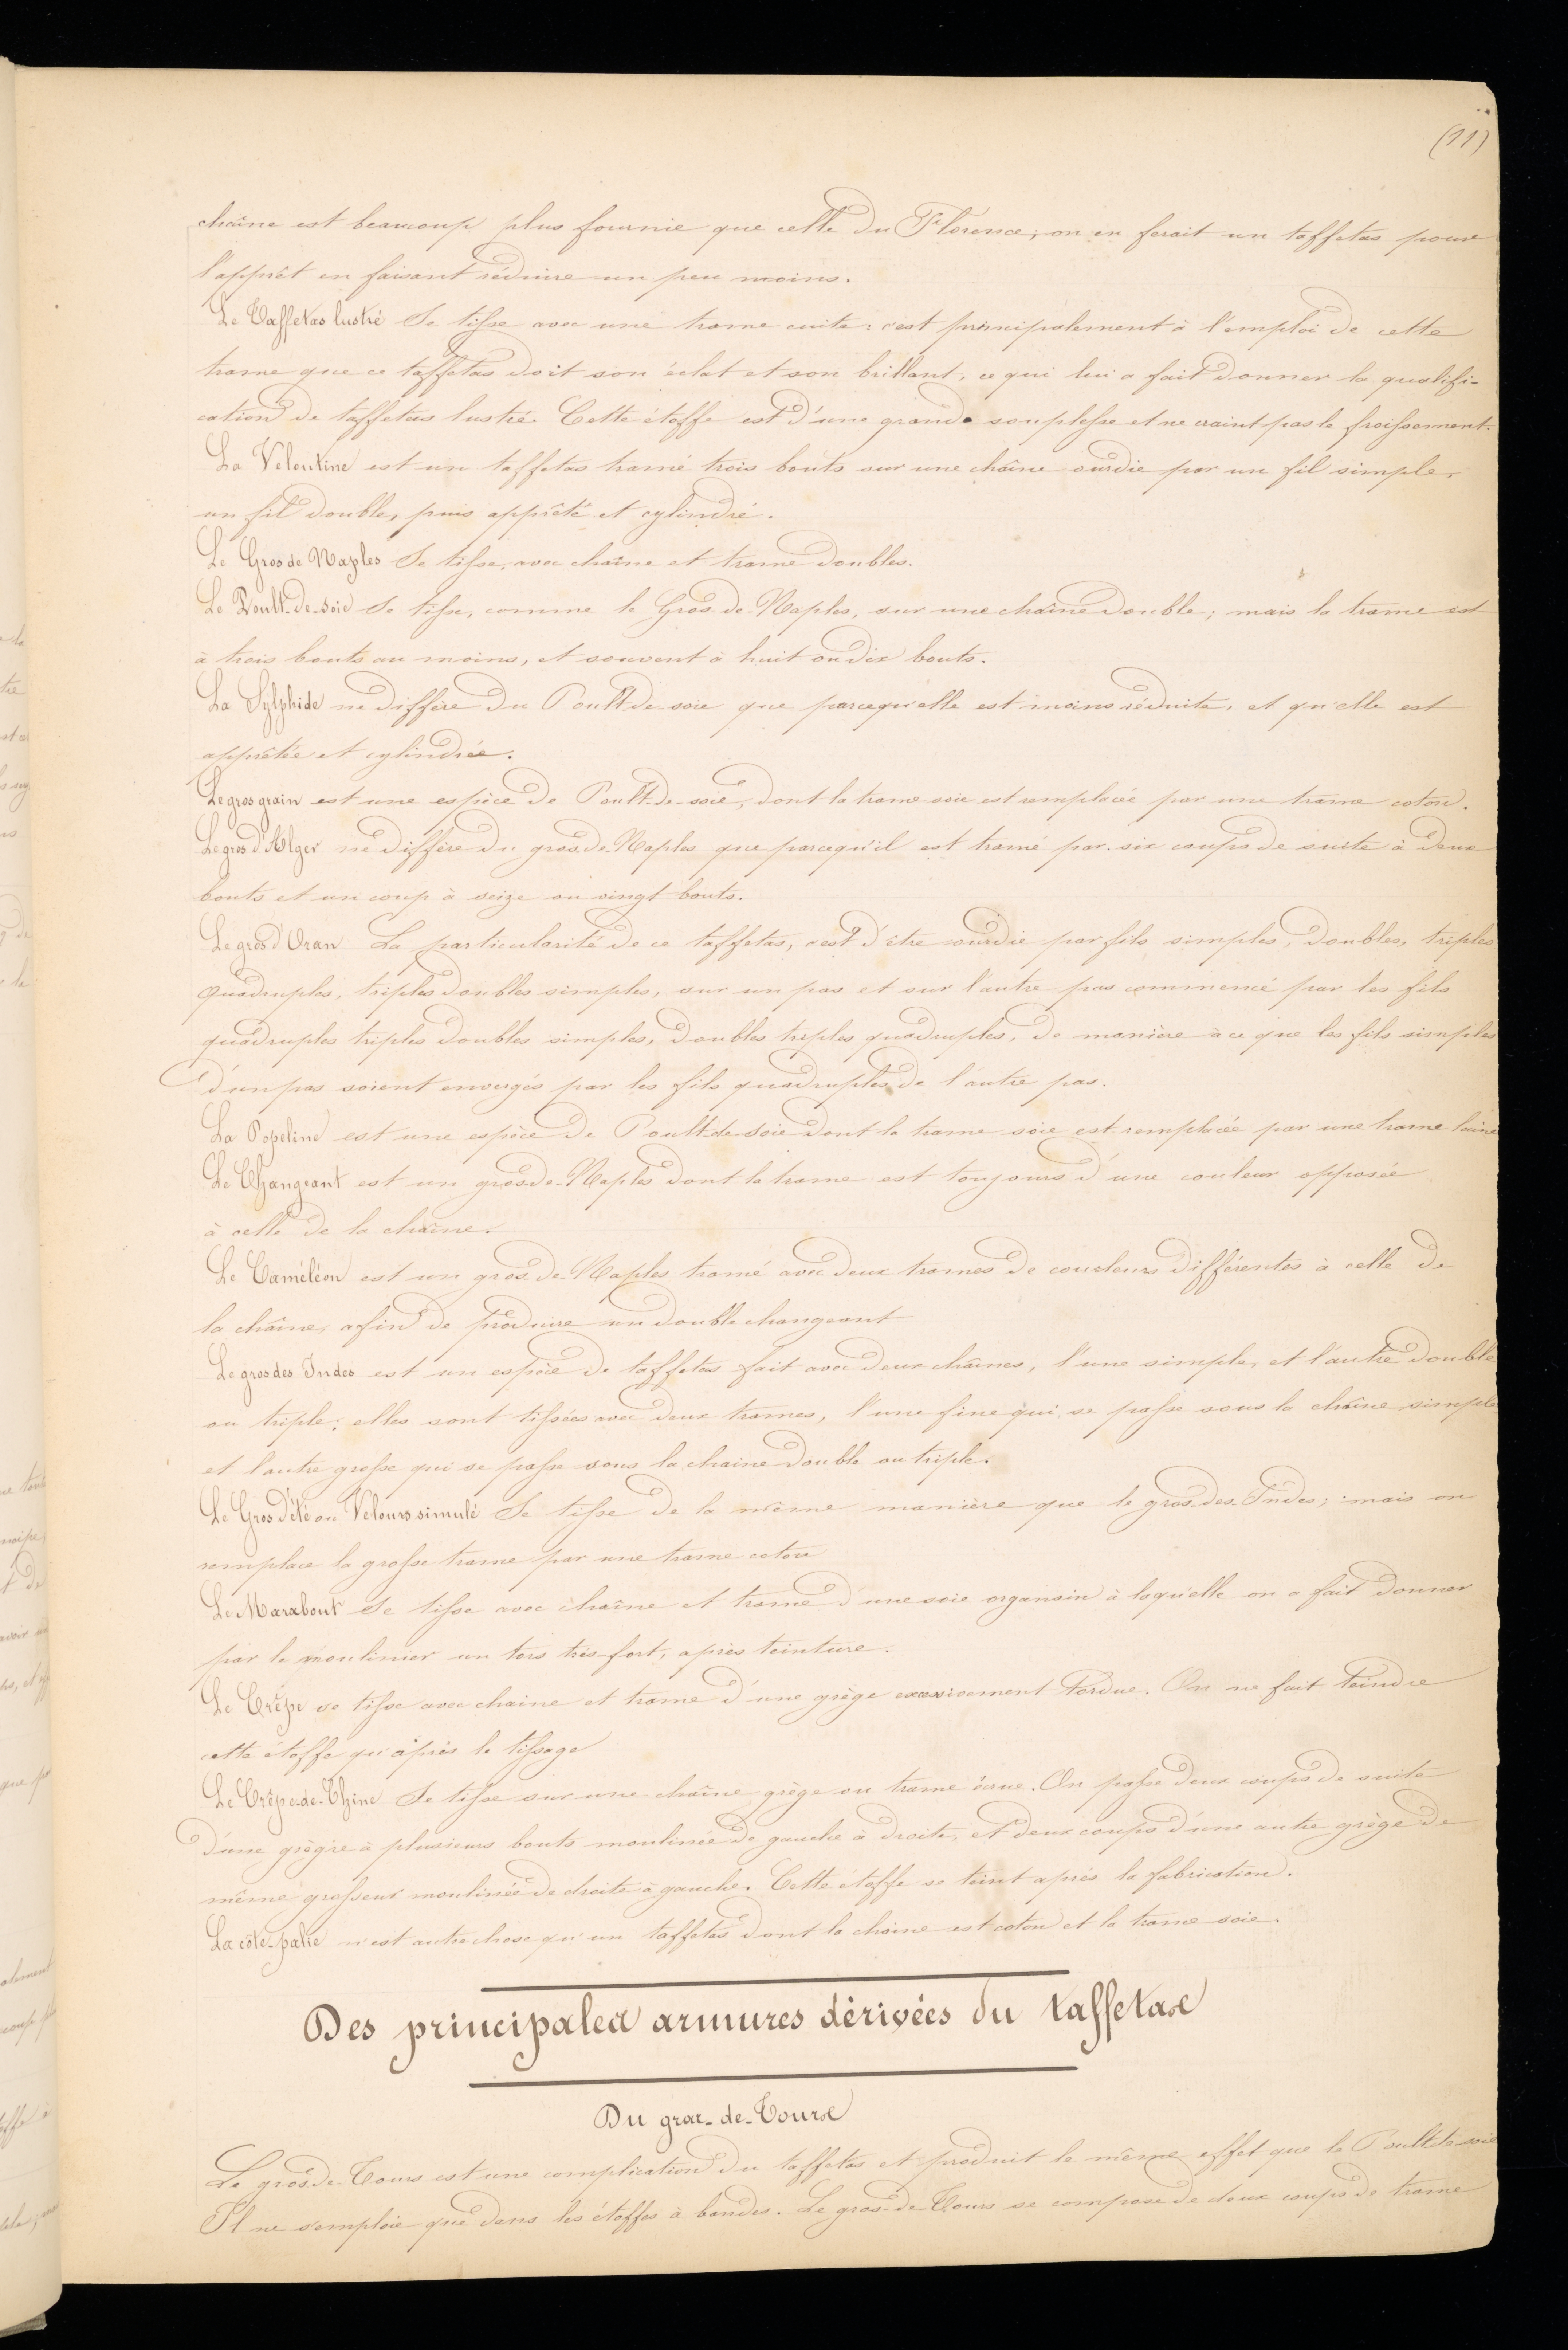 (11)
chaîne est beaucoup plus fournie que celle du Florence; on en ferait un taffetas pour
l'apprêt en faisant réduire un peu moins.
Le Taffetas lustré Se tisse avec une trame cuite: c'est principalement à l'emploi de cette
trame que ce taffetas doit son éclat et son brillant, ce qui lui a fait donner la qualifi-
cation de taffetas lustré. Cette étoffe est d'une grande souplesse et ne craint pas le froissement.
La Veloutine est un taffetas tramé trois bouts sur une chaîne ourdie par un fil simple,
un fil double, puis apprêté et cylindré.
Le Gros de Naples Se tisse, avec chaîne et trame doubles.
Le Poult-de-soie Se tisse, comme le Gros-de-Naples, sur une chaîne double; mais la trame est
à trois bouts au moins, et souvent à huit ou dix bouts.
La Sylphide ne diffère du Poult-de-soie que parcequ'elle est moins réduite, et qu'elle est
apprêtée et cylindrée.
Le gros grain est une espèce de Poult-de-soie, dont la trame soie est remplacée par une trame coton.
Le gros d'Alger ne diffère du gros-de-Naples que parcequ'il est tramé par six coups de suite à deux
bouts et un coup à seize ou vingt bouts.
Le gros d'Oran La particularité de ce taffetas, c'est d'être ourdie par fils simples, doubles, triples
quadruples, triples doubles simples, sur un pas et sur l'autre pas commencé par les fils
quadruples triples doubles simples, doubles triples quadruples, de manière à ce que les fils simples
d'un pas soient envergés par les fils quadruples de l'autre pas.
La Popeline est une espèce de Poult-de-Soie dont la trame soie est remplacée par une trame laine
Le Changeant est un gros-de-Naples dont la trame est toujours d'une couleur opposée
à celle de la chaîne.
Le Caméléon est un gros-de-Naples tramé avec deux trames de couleurs différentes à celle de
la chaîne, afin de produire un double changeant
Le gros des Indes est un espèce de taffetas fait avec deux chaînes, l'une simple, et l'autre double
ou triple; elles sont tissées avec deux trames, l'une fine qui se passe sous la chaîne simple
et l'autre grosse qui se passe sous la chaine double ou triple.
Le Gros d'été ou Velours simulé Se tisse de la même manière que le gros-des-Indes; mais on
remplace la grosse trame par une trame coton
Le Marabout Se tisse avec chaîne et trame d'une soie organsin à laquelle on a fait donner
par le moulinier un tors très-fort, après teinture.
Le Crêpe se tisse avec chaine et trame d'une grège excessivement tordue. On ne fait teindre
cette étoffe qu'après le tissage
Le Crêpe-de-Chine Se tisse sur une chaîne grège ou trame écrue. On passe deux coups de suite
d'une grègre à plusieurs bouts moulinée de gauche à droite, et deux coups d'une autre grège de
même grosseur moulinée de droite à gauche. Cette étoffe se teint après la fabrication.
La côte-palie n'est autre chose qu'un taffetas dont la chaine est coton et la trame soie.
Des principales armures dérivées du taffetas
Du gros-de-Tours
Le gros-de-Tours est une complication du taffetas et produit le même effet que le Poult-de-soie
Il ne s'emploie que dans les étoffes à bandes. Le gros-de-Tours se compose de deux coups de trame